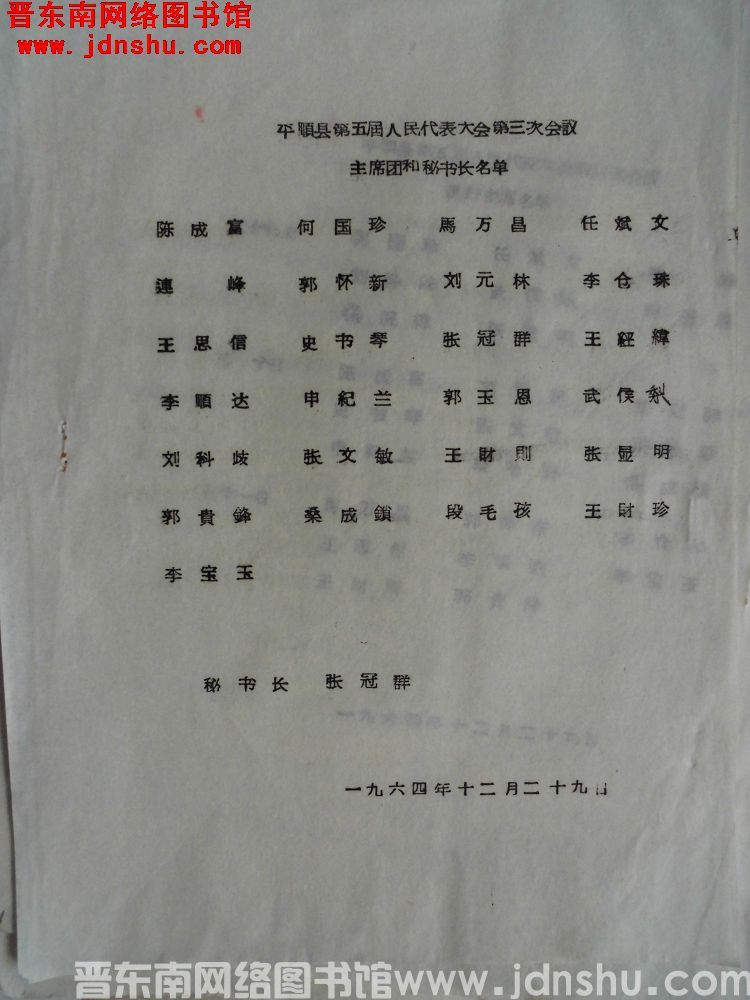 晋东南网络图书馆
www.jdnshu.com
平順县第五届人民代表大会第三次会议
主席团和秘书长名单
陈成富 何国珍 馬万昌 任斌文
連峰 郭怀新 刘元林 李仓珠
王思信 史书琴 张冠群 王経緯
李順达 申紀兰 郭玉恩 武侯梨
刘科歧 张文敏 王財則 张显明
郭貴鋒 桑成鎖 段毛孩 王財珍
李宝玉
秘书长 张冠群
一九六四年十二月二十九日
晋东南网络图书馆www.jdnshu.com